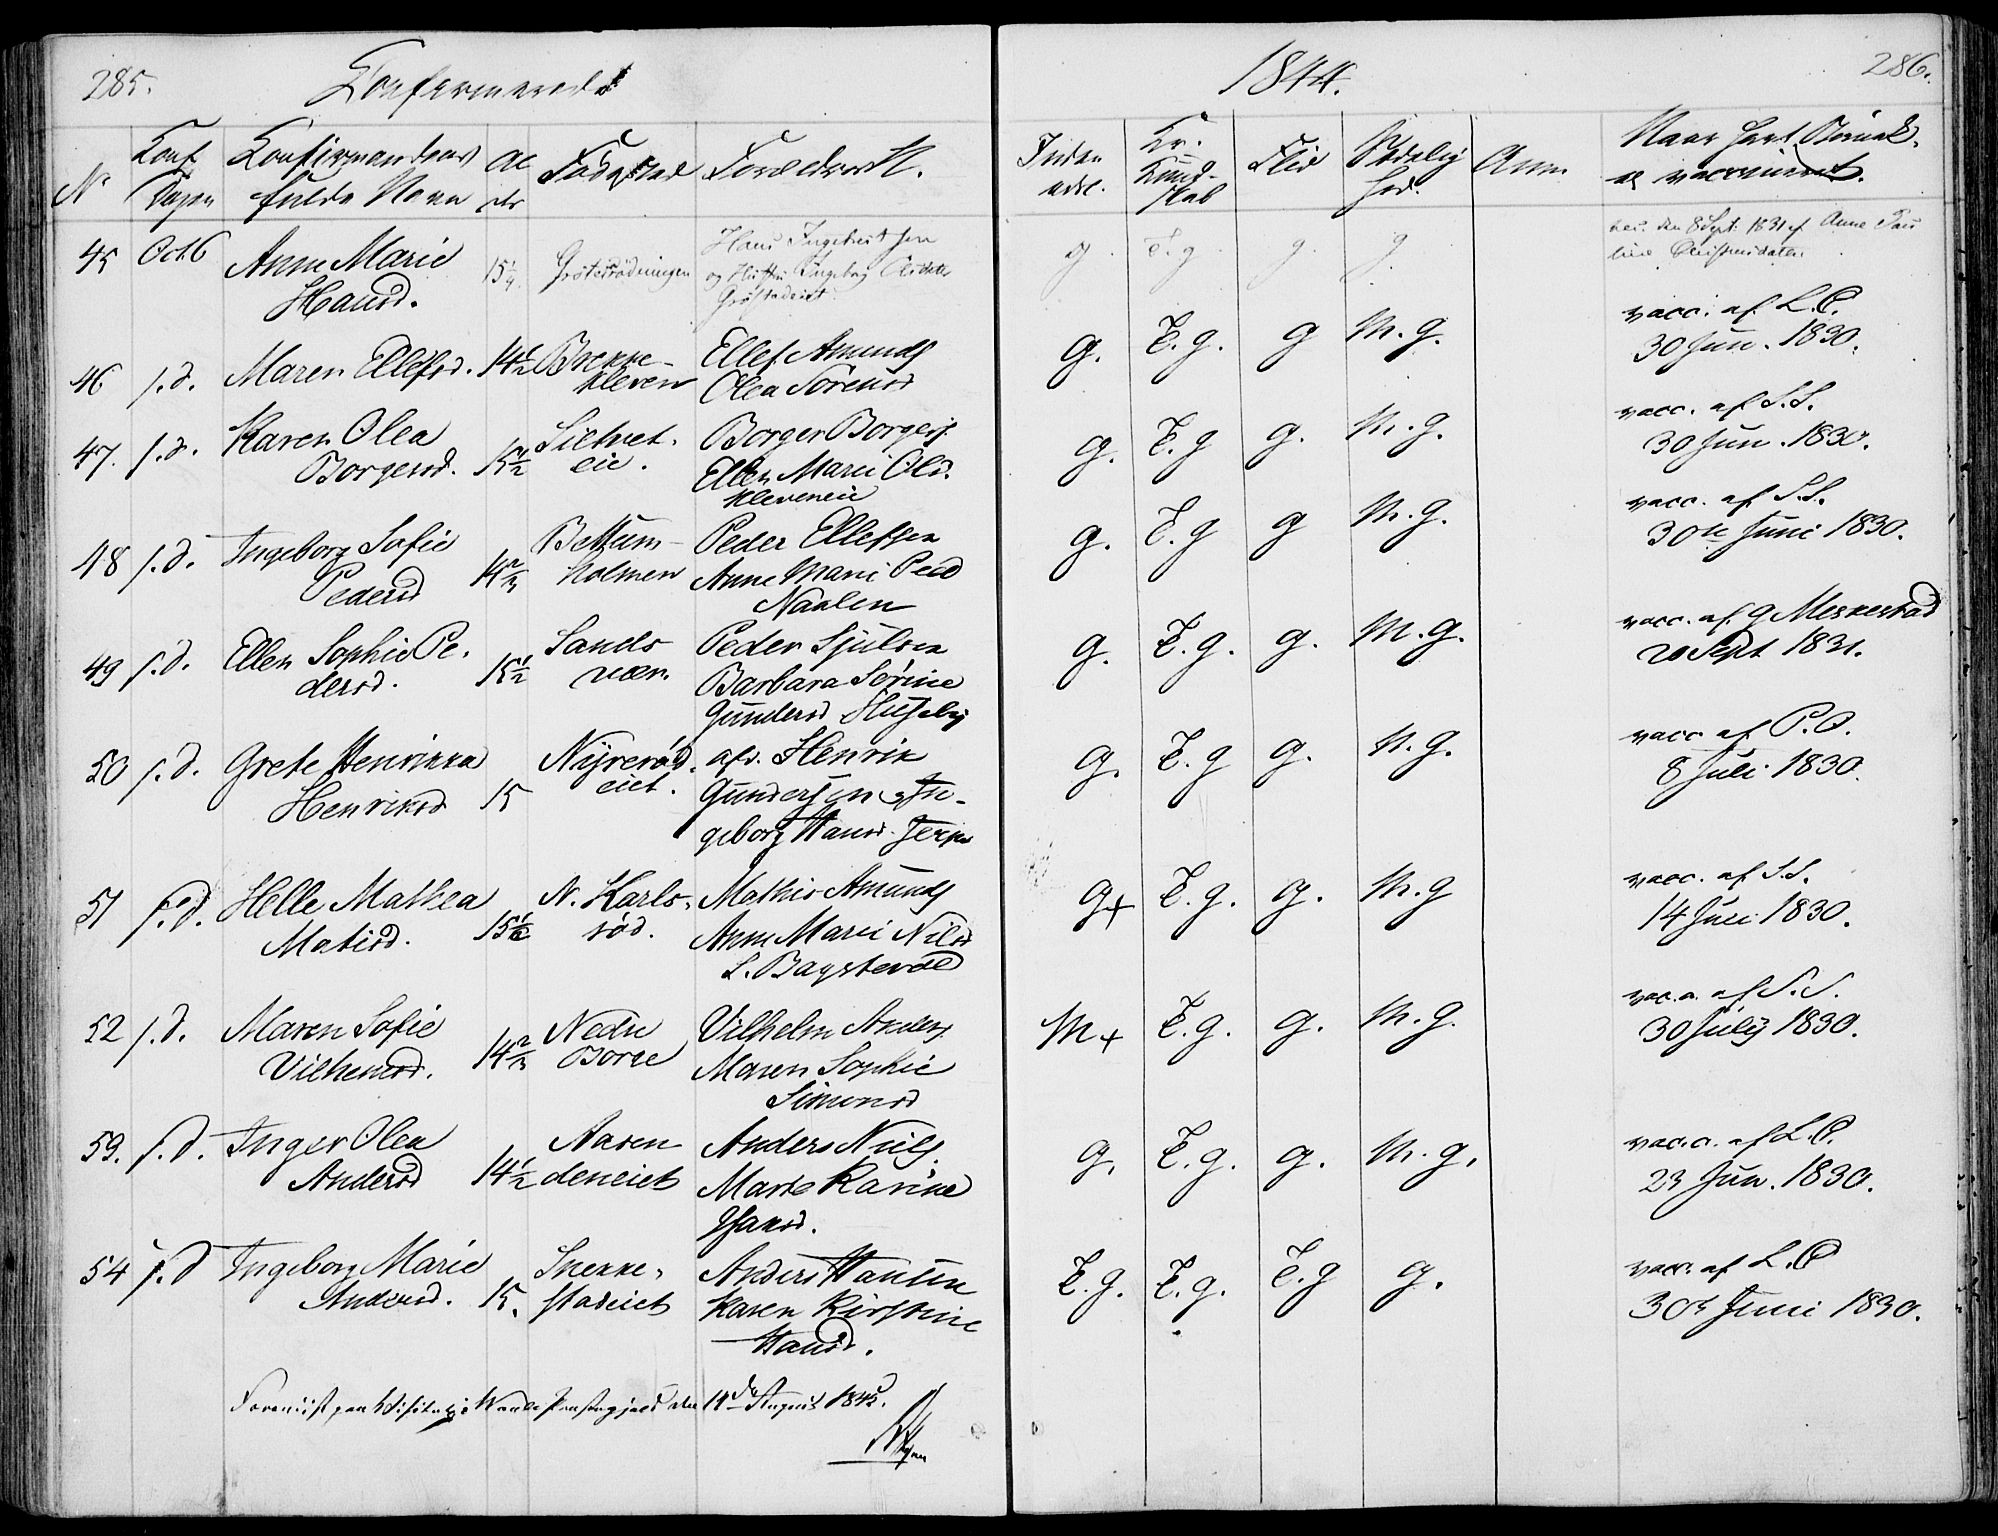 285. Confirmerede 1844. 286.
N° Conf Dagen Confirmandens fulde Navn Al der Fødested Forældrene. Inden adsl. Kr. Kund- skab Flid Sædelig hed. Anm. Naar havt Børnek. el vaccineret.
45 Oct 6 Anne Marie Hansd. 15 1/4 Hans Ingebret sen og Hustru Ingeborg g T. g g. g vac. den 8 Sept. 1831 af Anne Pau line Christensdatter
46 s. d. Maren Ellefsd. 14 1/2 Brekke- kleven Ellef Amunds Olea Sørensd g. T. g. g M. g. vacc. af L.C. 30 Jun. 1830.
47. s. d. Karen Olea Borgersd. 15 1/2 eie. Borger Borgers. Ellen Marie Olsd. Kleveneie g. T. g g. M. g. vacc. af S.S. 30 Jun. 1830.
48 s. d. Ingeborg Sofie Pedersd 14 2/3 Bettum- holmen Peder Ellefsen Anne Marie Ped Naalen g. T. g g M. g. vacc. af S.S. 30te Juni 1830.
49 s. d. Ellen Sophie Pe. dersd. 15 1/2 Sands vær. Peder Sjulsen Barbara Sørine Gundersd Huseby g. T. g. g. M. g. vacc. af. g Meskestad 20 Sept 1831.
50 s. d. Grete Henrikka Henriksd 15 Nyrerød. eiet. afd. Henrik Gundersen og In- geborg Hansd. g. T. g g. M. g. vacc af P.O. 8 Juli 1830.
51 s. d. Helle Mathea Matisd. 15 N. Karls- rød. Mathis Amunds Anne Marie Nilsd S. Bagsterød g+ T. g. g. M. g vacc. af S.S. 14 Juli 1830.
52 s. d. Maren Sofie Vilhemsd. 14 2/3 Nedre Borge Vilhelm Anders Maren Sophie Simonsd M+ T. g. g. M. g. vacc. af S.S. 30 July 1830.
53. s. d. Inger Olea Andersd 14 1/2 Aaren deneiet Anders Niels. Marte Karine Hansd. g. T. g. g. M. g. vacc. af L.C. 23 Jun. 1830.
54 s. d Ingeborg Marie Andersd. 15. Snekke- stadeiet Anders Hansen Karen Kirstine Hansd. T. g. T. g. T. g g. vacc. af L.C 30te Juni 1830.
Foreviist paa Visitats i Præstegjeld den 14de August 1845.